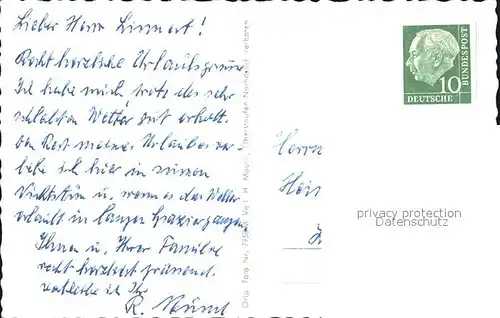 Lieber Herr Linnert!
Recht herzliche Urlaubsgrüsse
Ich habe mich, trotz des sehr
schlechten Wetters gut erholt.
Den Rest meines Urlaubes ver-
lebe ich hier in
Nichtstun u. wenn es das Wetter
erlaubt in langen Spaziergängen.
Ihnen u. Ihrer Familie
recht herzlichst grüssend
verbleibe ich Ihr
R.
Orig. Foto Nr. Verl. H.
DEUTSCHE
BUNDESPOST
10
Herrn
privacy protection
Datenschutz